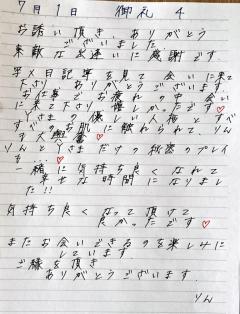 7月1日 御礼 4
お誘い頂き、ありがとう
ございました
素敵な出逢いに感謝です
写メ日記等を見て 会いに来て
お仕事でお疲れの中 会い
に来て下さり 嬉しかったです♡
さまの優しい人柄と すべ
すべのお肌に触れられて、りん
りんと さまだけの秘密のプレイ
も...♡
一緒に気持ち良くなれて
幸せな時間になりまし
た!!
気持ち良くなって頂けて
良かったです♡
またお会いできるのを楽しみに
しています
ご縁を頂き
ありがとうございます
りん